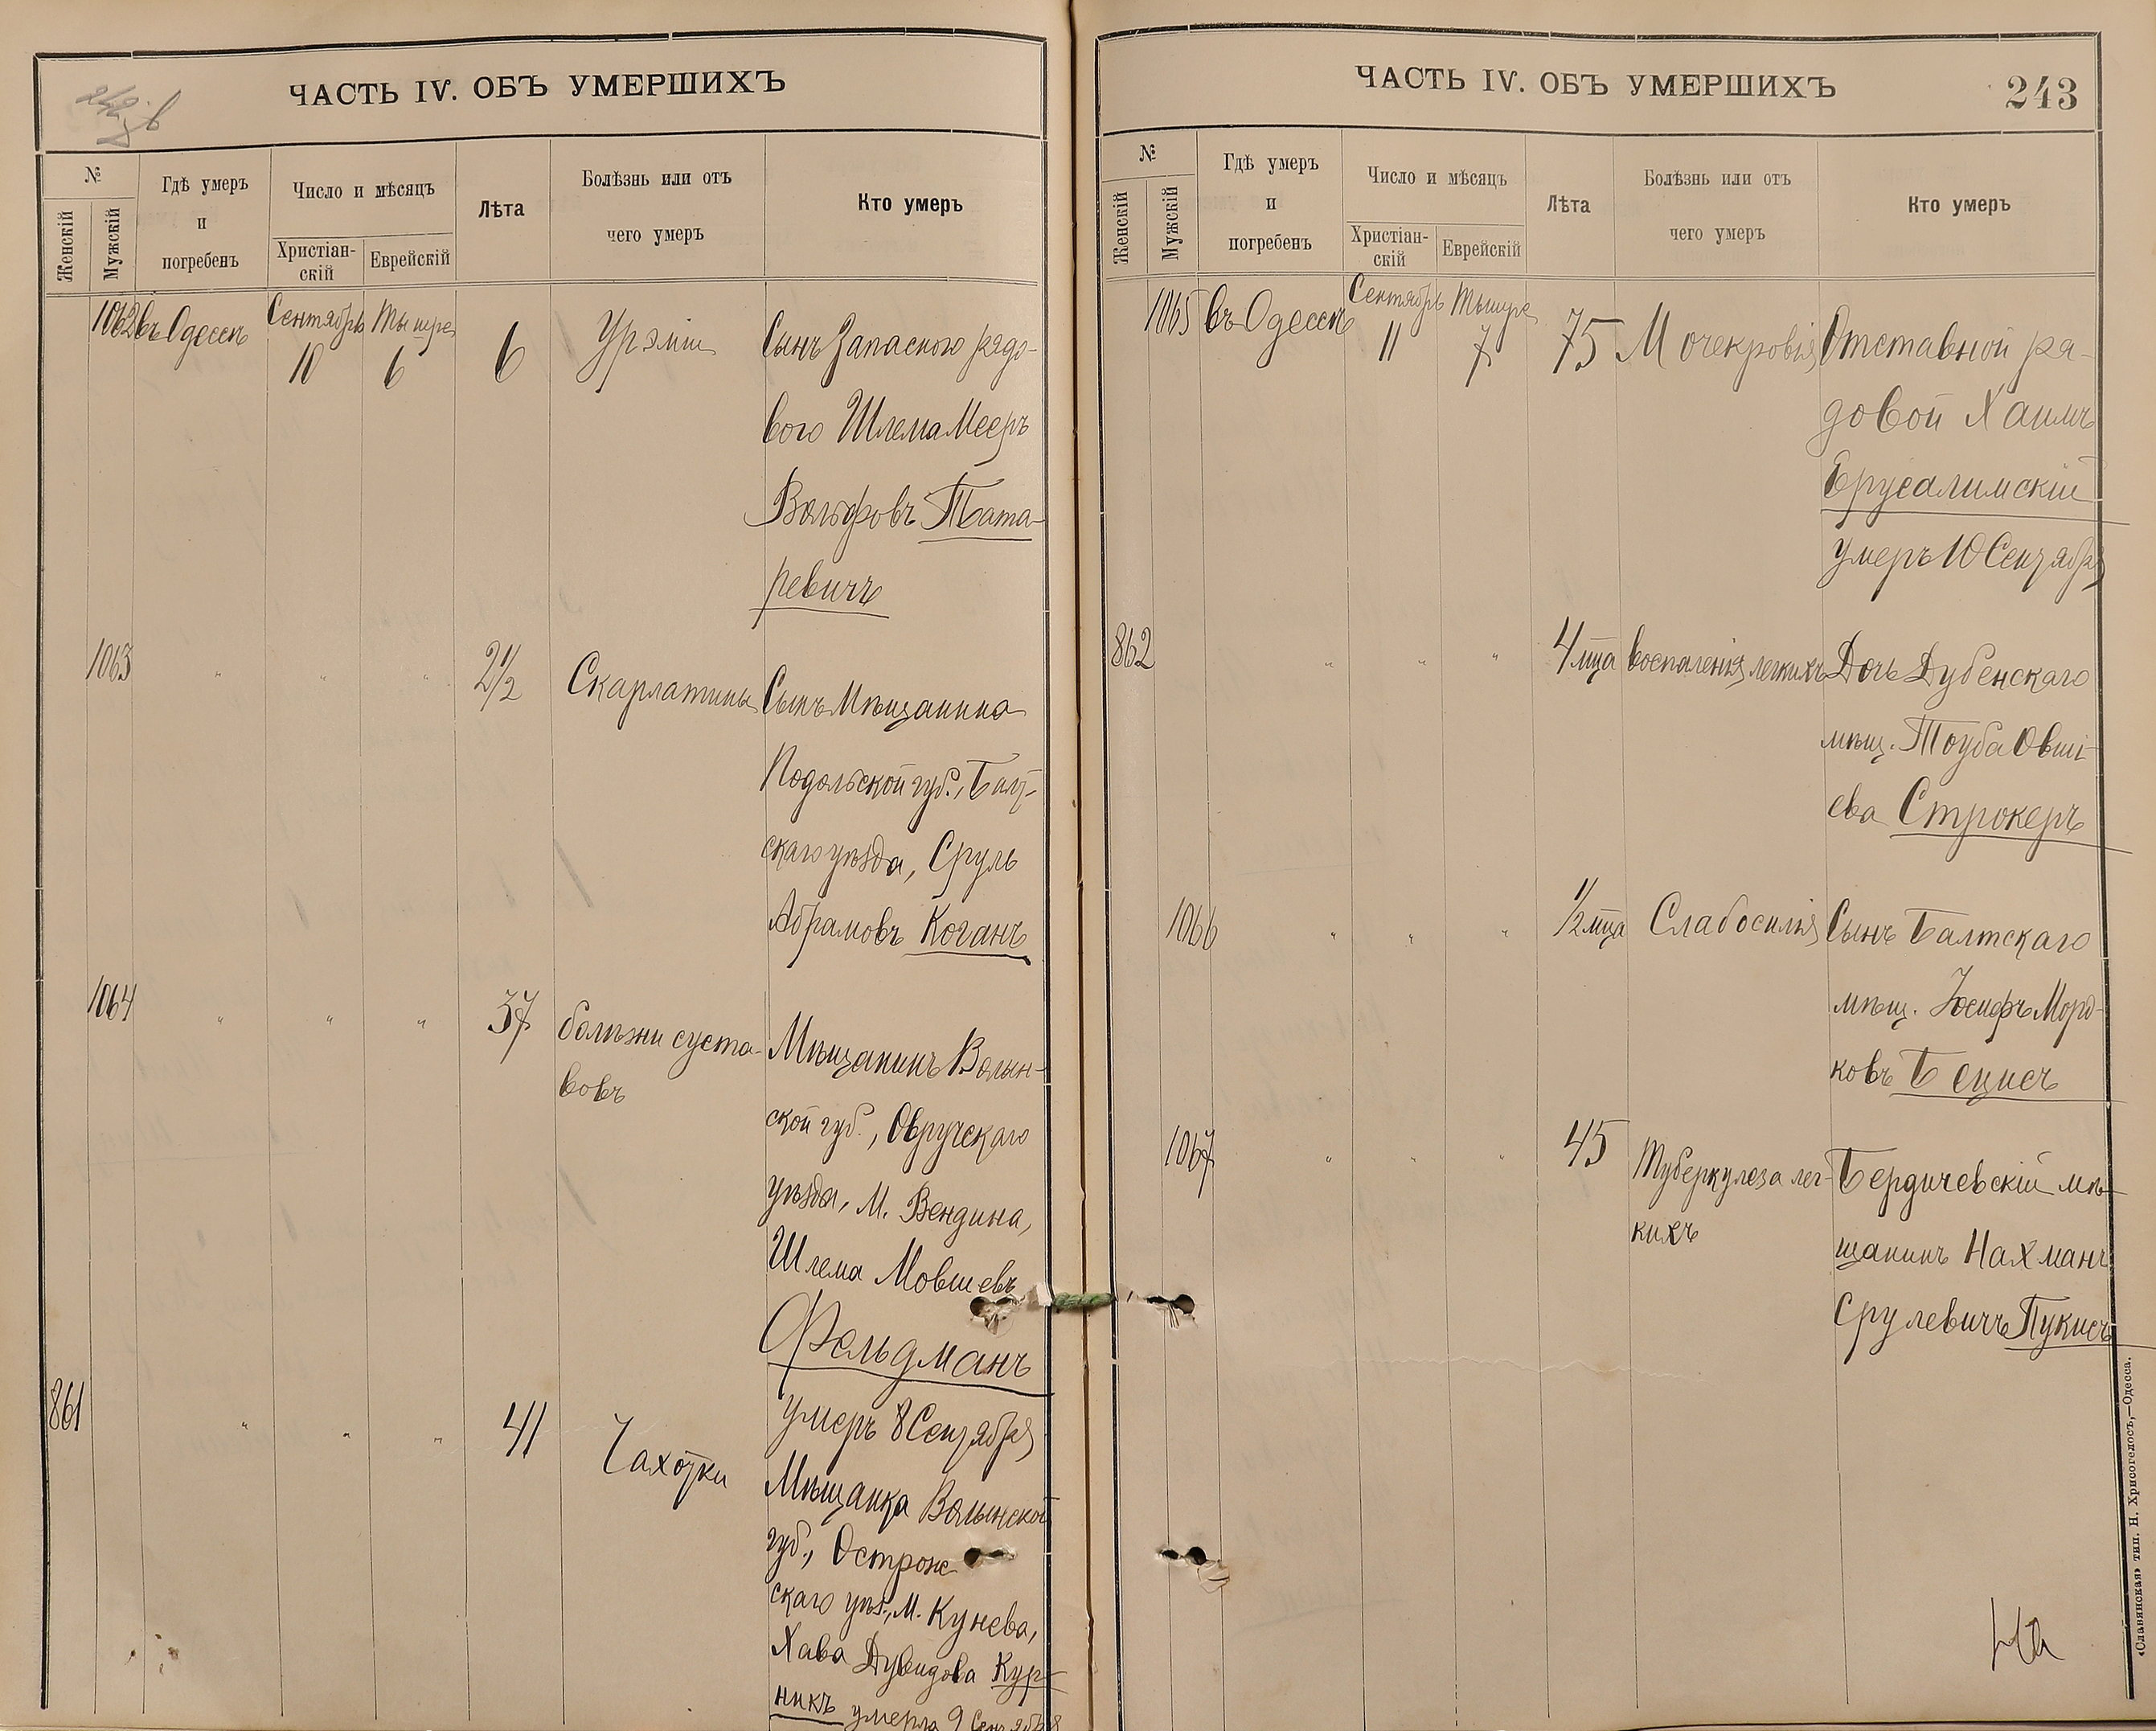 ЧАСТЬ IV. ОБЪ УМЕРШИХЪ
№
Женскій
Мужскій
Гдѣ умеръ
и
погребенъ
Число и мѣсяцъ
Христіан-
скій
Еврейскій
Лѣта
Болѣзнь или отъ
чего умеръ
Кто умеръ
1062 въ Одессѣ Сентябрь Тышре
10 6 6 Урэміи Сынъ Запасного рядо-
вого Шлема Мееръ
Вольфовъ Тата-
ревичъ
1063 " " " 2 1/2 Скарлатины Сынъ Мѣщанина
Подольской губ., Балт-
скаго уѣзда, Сруль
Абрамовъ Коганъ
1064 " " " 37 болѣзни суста-
вовъ
Мѣщанинъ Волын-
ской губ., Овручскаго
уѣзда, М. Вендина,
Шлема Мовшевъ
Фельдманъ
умеръ 8 Сентября
861 " " " 41 Чахотки
Мѣщанка Волынской
губ., Острож-
скаго уѣз., М. Кунева,
Хава Дувидова Кур-
никъ умерла 9 Сентября
ЧАСТЬ IV. ОБЪ УМЕРШИХЪ
243
№
Женскій
Мужскій
Гдѣ умеръ
и
погребенъ
Число и мѣсяцъ
Христіан-
скій
Еврейскій
Лѣта
Болѣзнь или отъ
чего умеръ
Кто умеръ
1065 въ Одессѣ Сентябрь Тышре
11 7 75 Мочекровія Отставной ря-
довой Хаимъ
Ерусалимскій
умеръ 10 Сентября
862 " " " 4 мца воспаленія легкихъ Дочь Дубенскаго
мѣщ. Тоуба Овші-
ева Строкеръ
1066 " " " 1/2 мца Слабосилія Сынъ Балтскаго
мѣщ. Іосифъ Морд-
ковъ Бецисъ
1067 " " " 45 Туберкулеза лег-
кихъ
Бердичевскій мѣ-
щанинъ Нахманъ
Срулевичъ Пукисъ
«Славянская» тип. Н. Хрисогелосъ,—Одесса.